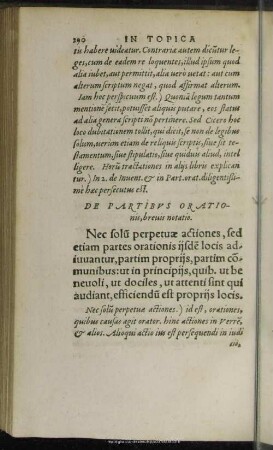 240 IN TOPICA
tis habere uideatur. Contrariæ autem dicūtur le-
ges, cum de eadem re loquentes, illud ipsum quod
alia iubet, aut permittit, alia uerò uetat: aut cum
alterum scriptum negat, quod affirmat alterum.
Iam hoc perspicuum est.) Quoniā legum tantum
mentionē fecit, potuisset aliquis putare, eos status
ad alia genera scripti nō pertinere. Sed Cicero hoc
loco dubitationem tollit, qui dicit, se non de legibus
solum, uerùm etiam de reliquis scriptis, siue sit te-
stamentum, siue stipulatio, siue quiduis aliud, intel
ligere. Horū tractationes in alijs libris explican
tur.) In 2. de Inuent. & in Part.orat.diligentissi-
mè hæc persecutus est.
DE PARTIBVS ORATIO-
nis, breuis notatio.
Nec solū perpetuæ actiones, sed
etiam partes orationis ijsdē locis ad-
iuuantur, partim proprijs, partim cō-
munibus: ut in principijs, quib. ut be
neuoli, ut dociles, ut attenti sint qui
audiant, efficiendū est proprijs locis.
Nec solū perpetuæ actiones.) id est, orationes,
quibus causas agit orator. hinc actiones in Verrē,
& alios. Alioqui actio ius est persequendi in iudi
cio,